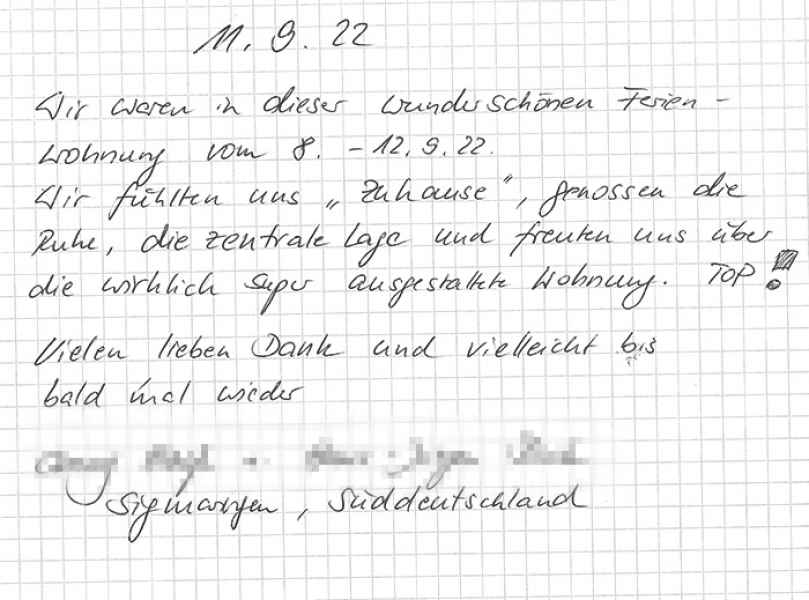 11. 9. 22
Wir waren in dieser wunderschönen Ferien-
wohnung vom 8. - 12. 9. 22.
Wir fühlten uns „Zuhause", genossen die
Ruhe, die zentrale Lage und freuten uns über
die wirklich super ausgestattete Wohnung. TOP!
Vielen lieben Dank und vielleicht bis
bald mal wieder
Sigmaringen, Süddeutschland